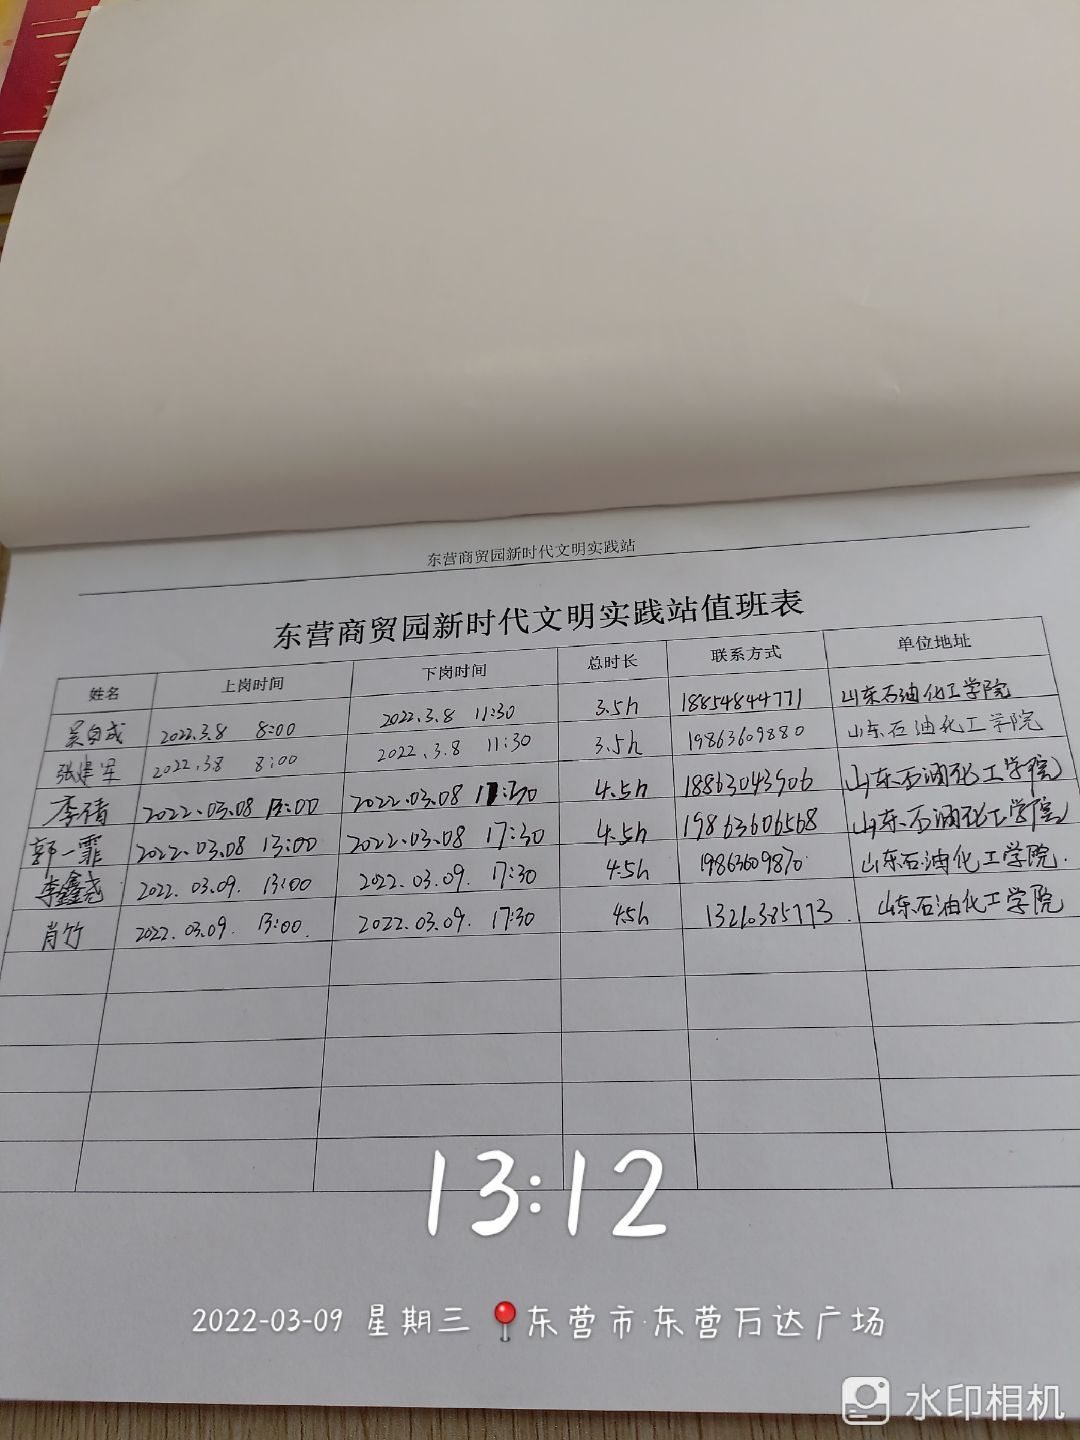 东营商贸园新时代文明实践站
东营商贸园新时代文明实践站值班表
姓名 上岗时间 下岗时间 总时长 联系方式 单位地址
吴自成 2022.3.8 8:00 2022.3.8 11:30 3.5h 18854844771 山东石油化工学院
张建军 2022.3.8 8:00 2022.3.8 11:30 3.5h 19863609880 山东石油化工学院
李倩 2022.03.08 13:00 2022.03.08 17:30 4.5h 18863043906 山东石油化工学院
郭一霏 2022.03.08 13:00 2022.03.08 17:30 4.5h 19863606568 山东石油化工学院
李鑫尧 2022.03.09. 13:00 2022.03.09. 17:30 4.5h 19863609870 山东石油化工学院.
肖竹 2022.03.09. 13:00. 2022.03.09. 17:30 4.5h 13210385773. 山东石油化工学院
13:12
2022-03-09 星期三 东营市·东营万达广场
水印相机